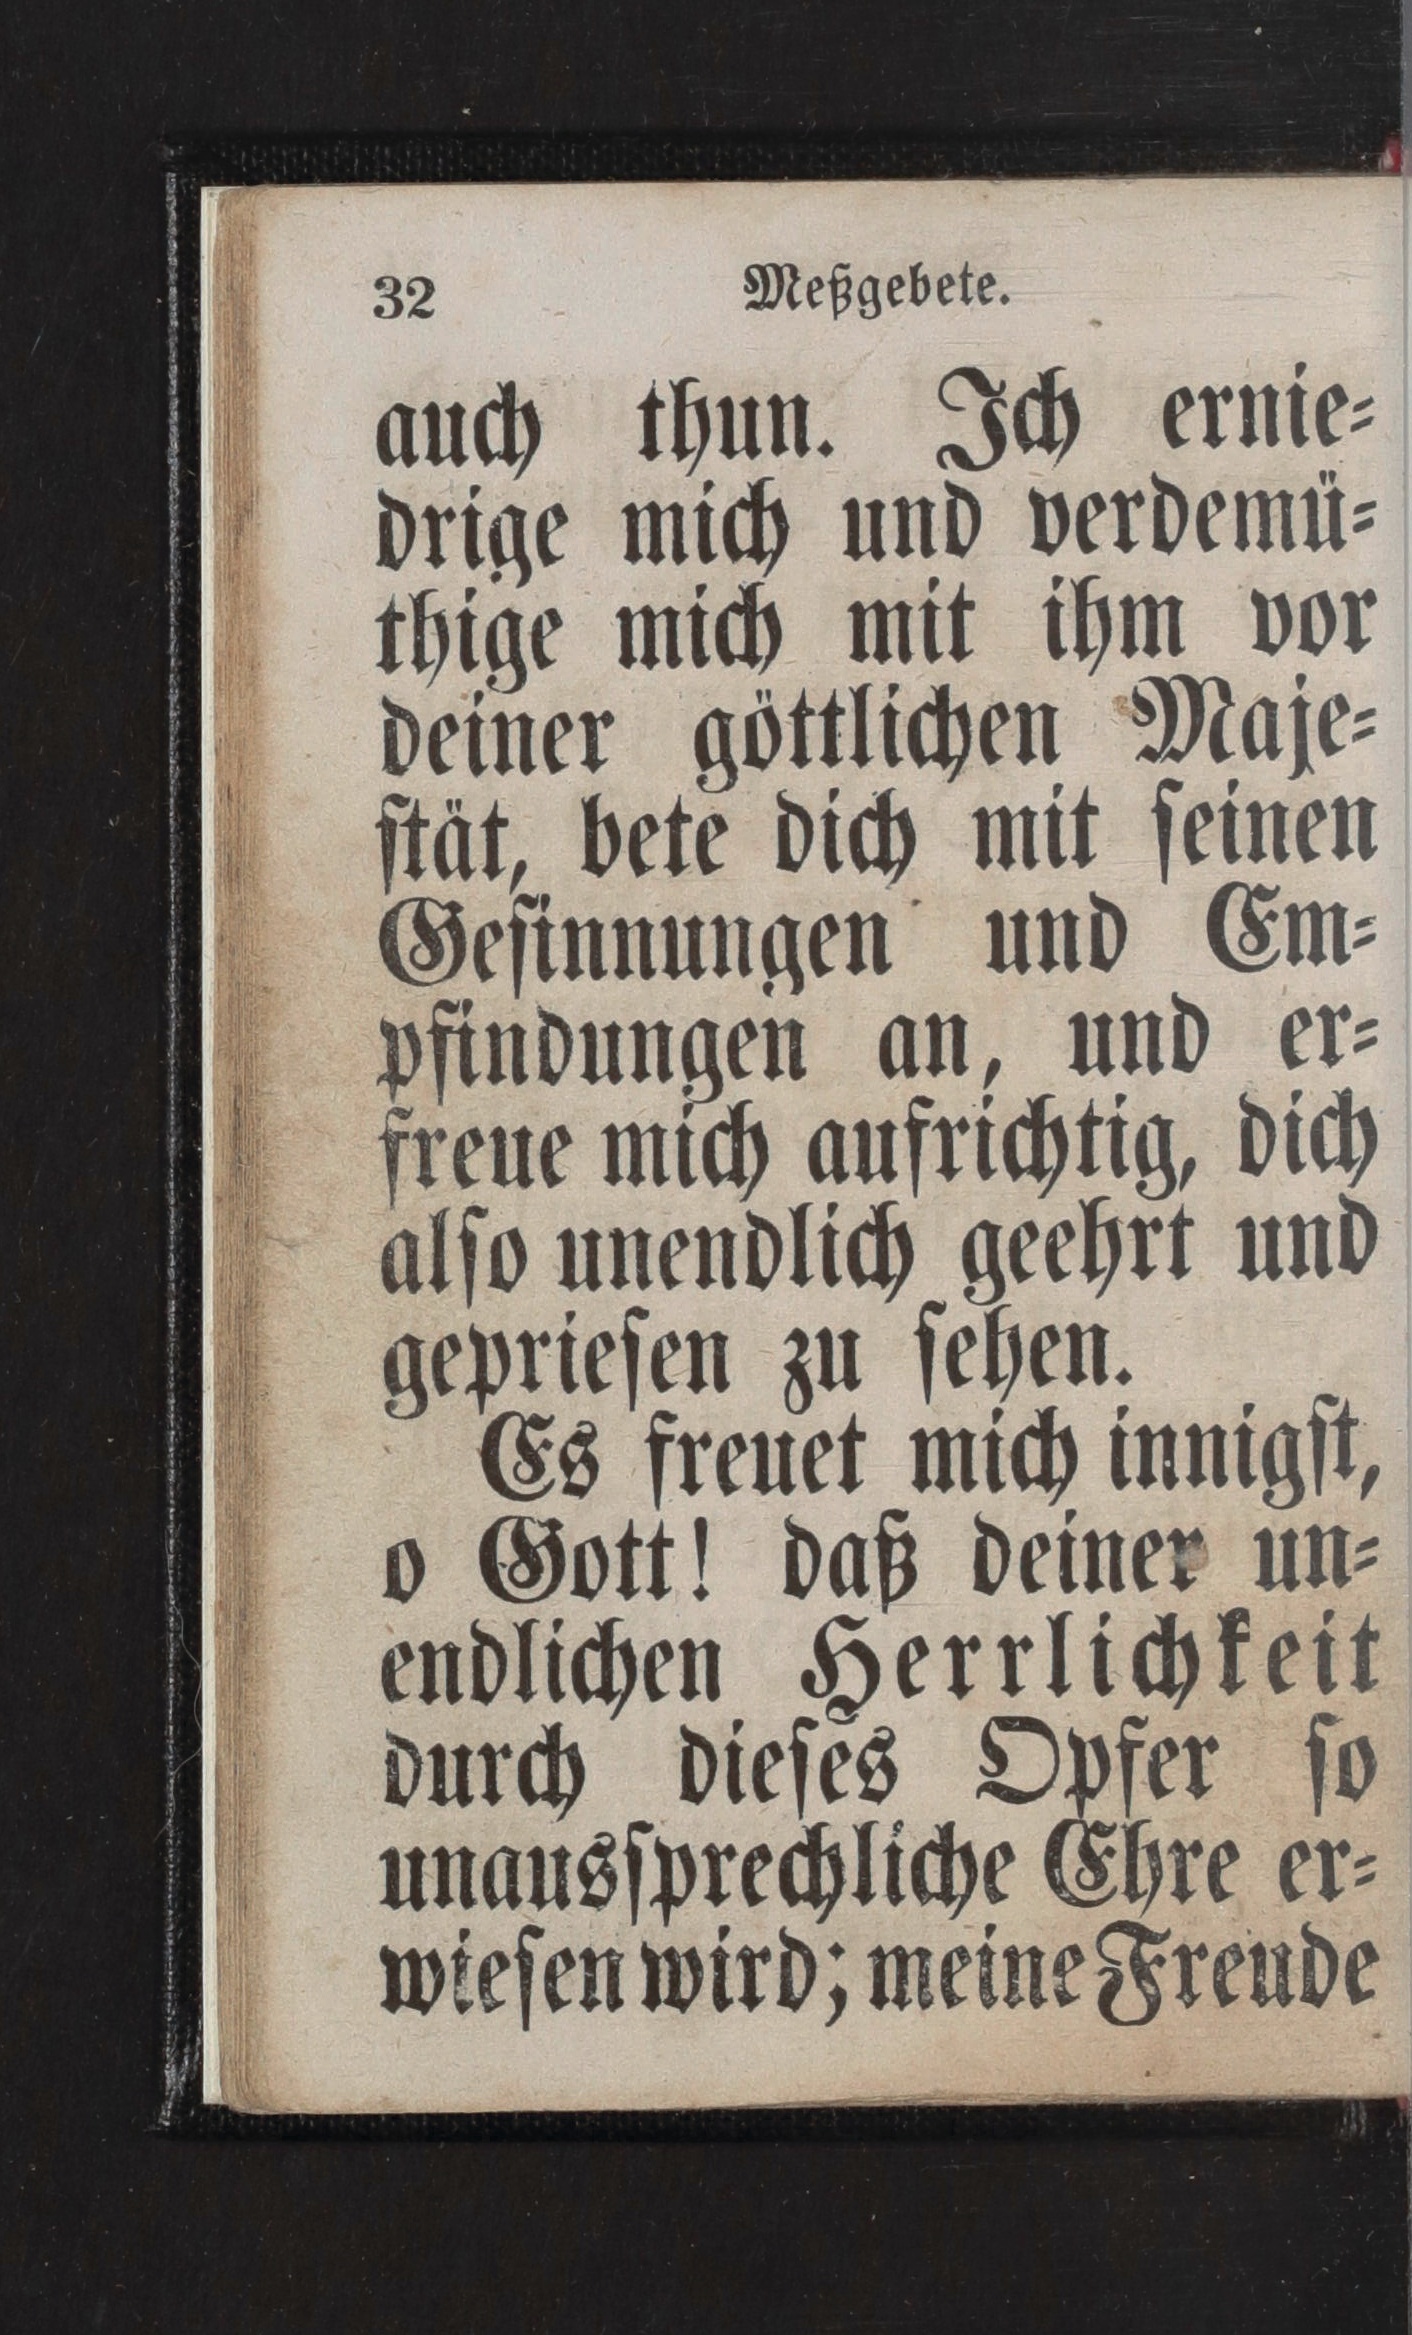 32 Meßgebete.
auch thun. Ich ernie=
drige mich und verdemü=
thige mich mit ihm vor
deiner göttlichen Maje=
stät, bete dich mit seinen
Gesinnungen und Em=
pfindungen an, und er=
freue mich aufrichtig, dich
also unendlich geehrt und
gepriesen zu sehen.
Es freuet mich innigst,
o Gott! daß deiner un=
endlichen Herrlichkeit
durch dieses Opfer so
unaussprechliche Ehre er=
wiesen wird; meine Freude